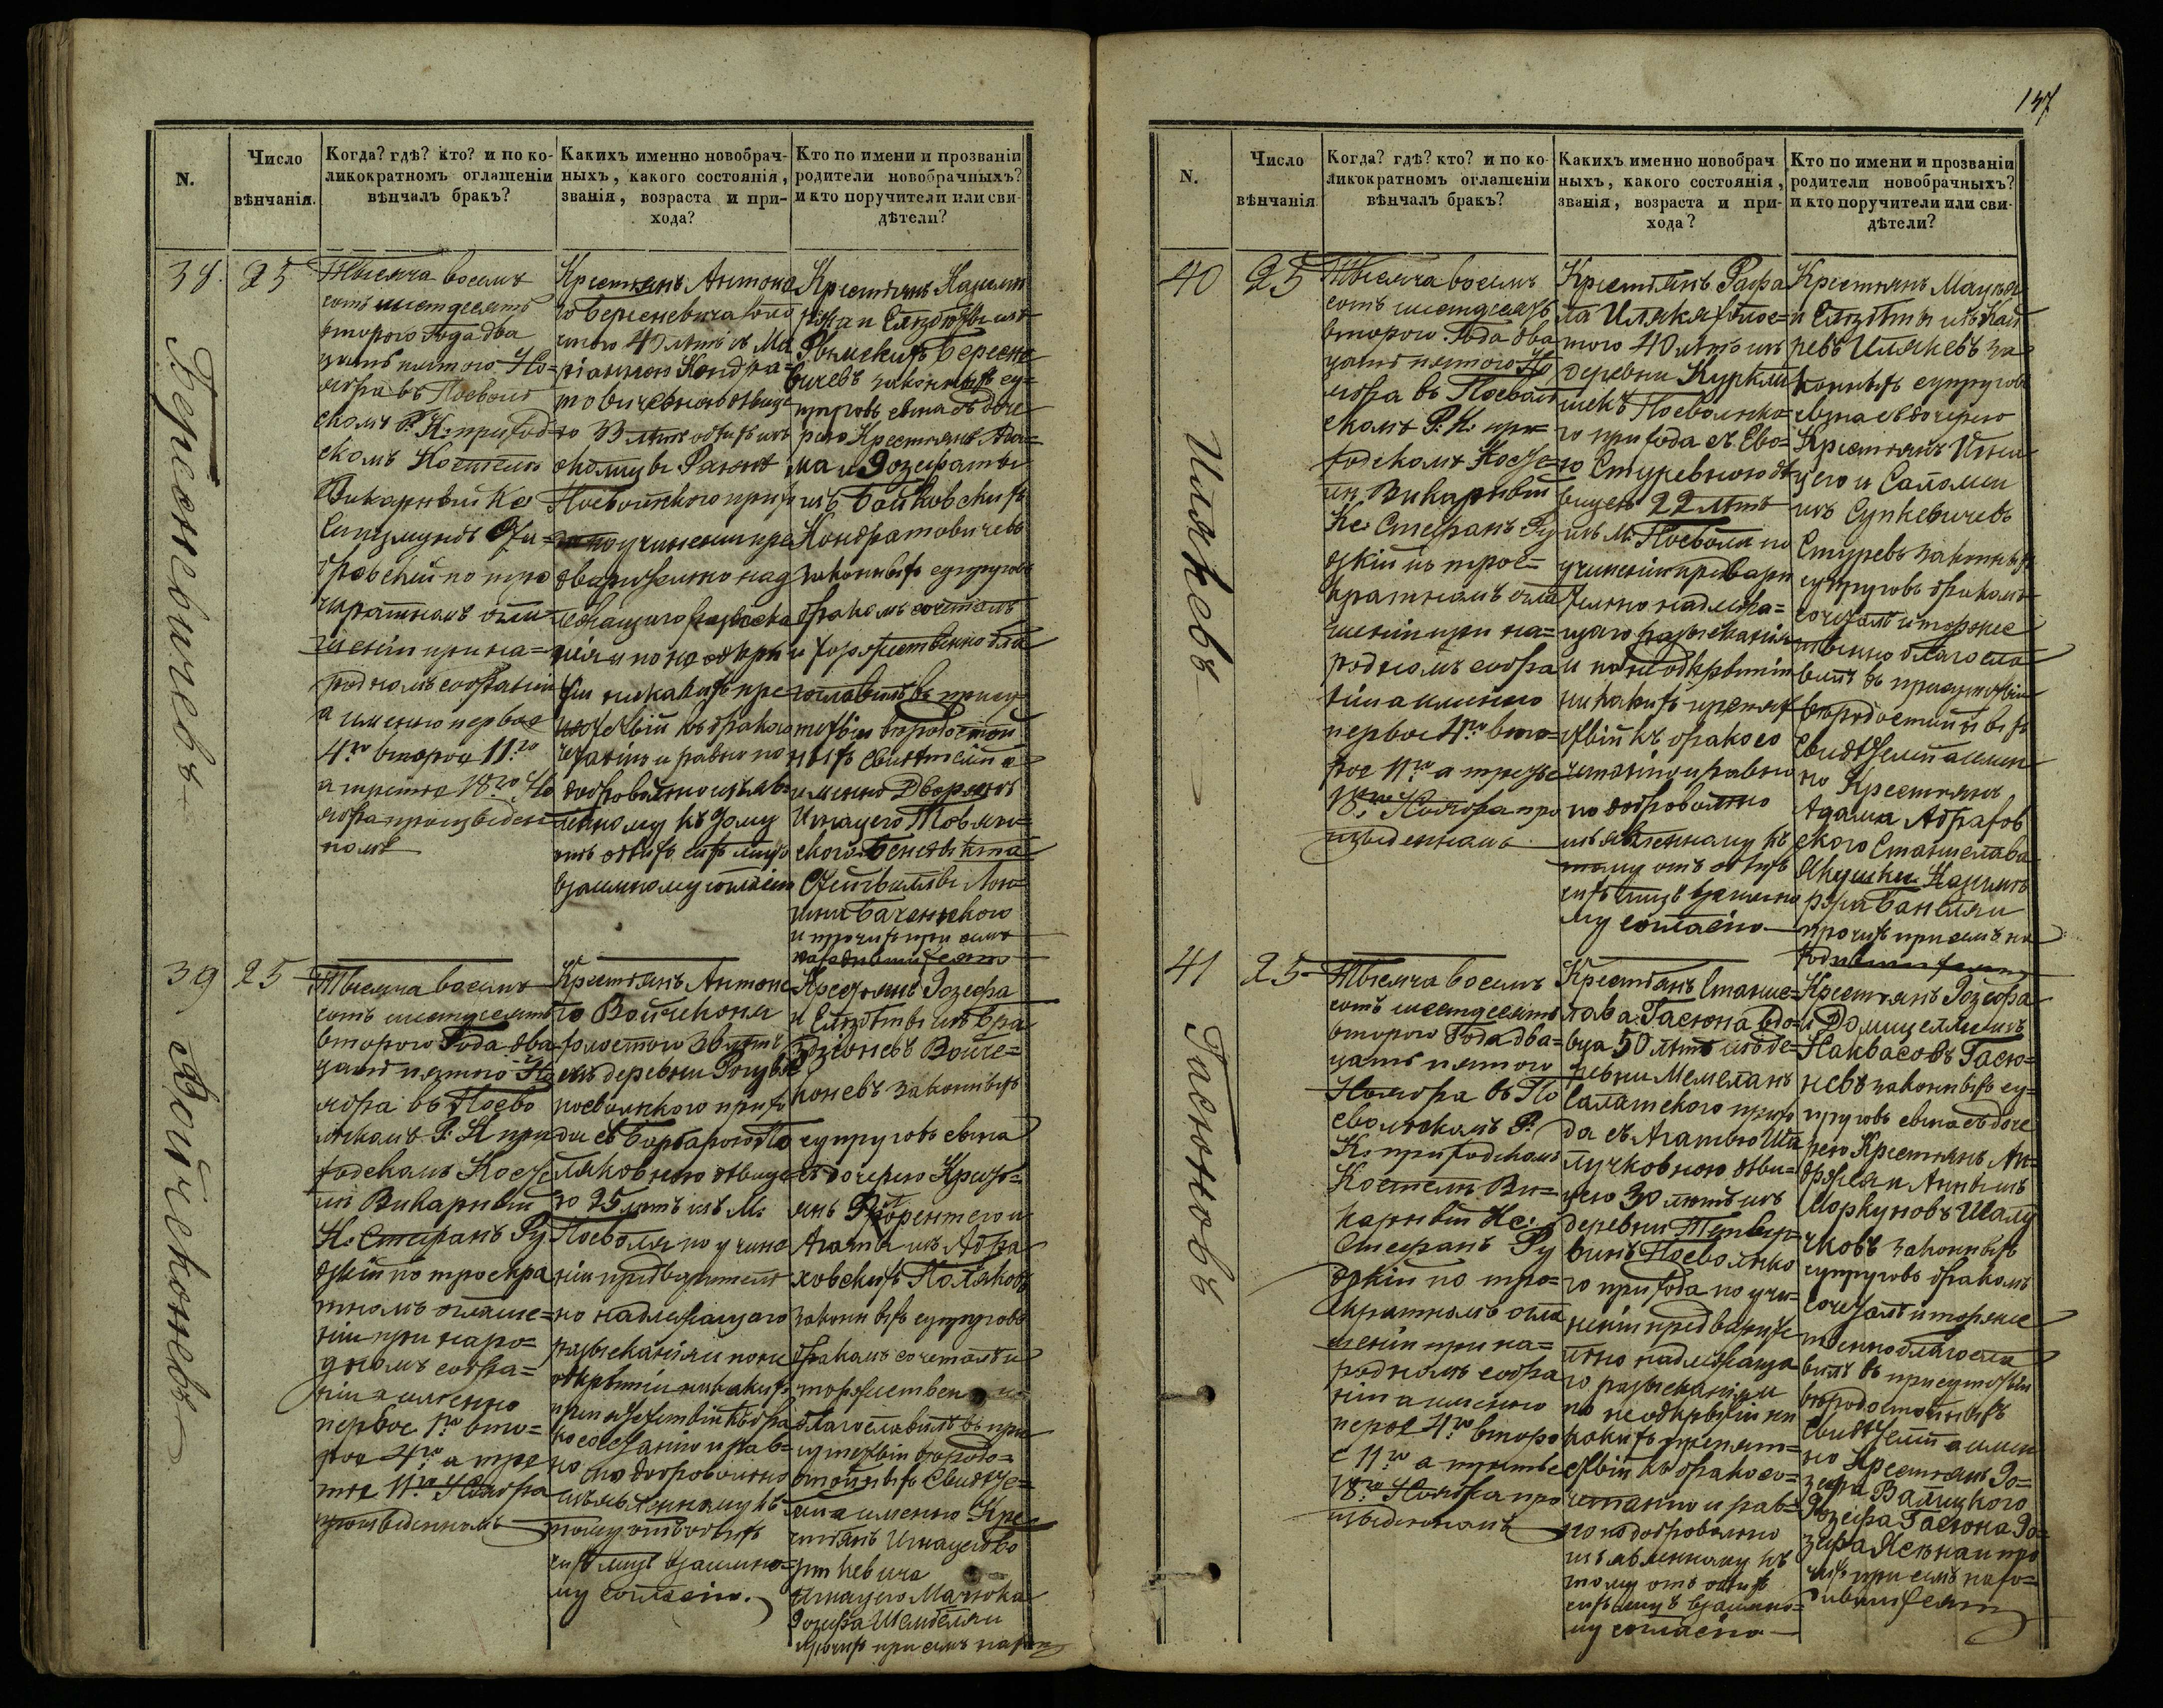 147
N.
Число
вѣнчанія.
Когда? гдѣ? кто? и по ко-
ликократномъ оглашеніи
вѣнчалъ бракъ?
Какихъ именно новобрач-
ныхъ, какого состоянія,
званія, возраста и при-
хода?
Кто по имени и прозваніи
родители новобрачныхъ?
и кто поручители или сви-
дѣтели?
38.
Береневичевъ
25
Тысяча восемь
сотъ шестдесятъ
второго Года два
цать пятого Но=
ября въ Посволь
скомъ Р. К. приход=
скомъ Костелѣ
Викарный Кс
Сигизмундъ
по трое
кратномъ огла=
шеніи при на=
родномъ собраніи
а именно первое
4го второе 11го
а третье 18го Но
ября произведен=
номъ
Крестьянъ Антона
40 лѣтъ съ Ма
ріанною Кондра=
товичевною дѣвице
ю 33 лѣтъ обѣихъ изъ
Посвольского прих
по учиненіи пре
дварительно над
лежащаго разыска
нія и по не откры
тіи никакихъ пре
пятствій къ брако со
четанію и равно по
добровольно изъяв
ленному къ тому
отъ обѣихъ сихъ лицъ
взаимному согласію
Крестьянъ
и Елизбѣты изъ
законныхъ су=
пруговъ сына съ доче
рью Крестьянъ Ада=
ма и Іозефаты
изъ Бойковскихъ
Кондратовичевъ
законныхъ супруговъ
бракомъ сочеталъ
и торжественно бла
гословилъ въ присут
ствіи вѣродостой
ныхъ свидѣтелей а
именно Дворянъ
Игнацего Товян=
ского
и прочихъ при семъ
находившихся
39
Войчеконевъ
25
Тысяча восемь
сотъ шестдесятъ
второго Года два
цать пятого Но
ября въ Посво
льскомъ Р: К при
ходскомъ Косте
лѣ Викарный
К. Стефанъ Ру
дзкій по троекра
тномъ оглаше=
ніи при наро=
дномъ собра=
ніи а именно
первое 1го вто=
рое 4го а тре
тье 11го Ноября
произведенномъ
Крестьянъ Антоне=
го Войчеконя
холостого лѣтъ
изъ деревни
посвольского прихо
да съ Барбарою По
ляковною дѣвице=
ю 25 лѣтъ изъ М.
Посволя по учине
ніи предварител
но надлежащаго
разысканія и по не
открытіи никакихъ
препятствій къ бра
ко сочетанію и рав=
но по добровольно
изъявленному къ
тому отъ обѣихъ
сихъ лицъ взаимно=
му согласію.
Крестьянъ Іозефа
и Елизбѣты изъ
Войче=
коневъ законныхъ
супруговъ сына
съ дочерью Кресть=
янъ Флорентего и
Агаты изъ Абра
ховскихъ Поляковъ
законныхъ супруговъ
бракомъ сочеталъ и
торжественно
благословилъ въ при
сутствіи вѣродо=
стойныхъ свидѣте=
лей а именно Кре=
стьянъ Игнацего
Игнацего Мачюка
Іозефа
прочихъ при семъ наход
N.
Число
вѣнчанія
Когда? гдѣ? кто? и по ко-
ликократномъ оглашеніи
вѣнчалъ бракъ?
Какихъ именно новобрач
ныхъ, какого состоянія,
званія, возраста и при-
хода?
Кто по имени и прозваніи
родители новобрачныхъ?
и кто поручители или сви-
дѣтели?
40
Илякевъ
25
Тысяча восемь
сотъ шестдесятъ
второго Года два
цать пятого Но
ября въ Посволь
скомъ Р. К. при=
ходскомъ Косте=
лѣ Викарный
Кс. Стефанъ Ру
дзкій по трое=
кратномъ огла
шеніи при на=
родномъ собра
ніи а именно
первое 4го вто=
рое 11го а третье
18го Ноября про
изведенномъ
Крестьянъ Рафа
ла Иляка холос=
того 40 лѣтъ изъ
деревни Куркли
шекъ Посвольско=
го прихода съ Ево=
ю Стуревною дѣ
вицею 22 лѣтъ
изъ М. Посволя по
учиненіи предвари
тельно надлежа=
щаго разысканія
и по не открытіи
никакихъ препят
ствій къ брако со
четанію и равно
по добровольно
изъявленному къ
тому отъ обѣихъ
сихъ лицъ взаимно
му согласію
Крестьянъ
и Елизбѣты изъ
Илякевъ за
конныхъ супруговъ
сына съ дочерью
Крестьянъ Игна
цего и Саломеи
изъ Супкевичевъ
Стуревъ законныхъ
супруговъ бракомъ
сочеталъ и торжес
твенно благосло
вилъ въ присутствіи
вѣродостойныхъ
свидѣтелей а имен
но Крестьянъ
Адама
ского Станислава
Якушки
прочихъ при семъ на
ходившихся
41
Гасюновъ
25
Тысяча восемь
сотъ шестдесятъ
второго Года два=
цать пятого
Ноября въ По
свольскомъ Р.
К. приходскомъ
Костелѣ Ви=
карный Кс.
Стефанъ Ру
дзкій по трое=
кратномъ огла
шеніи при на=
родномъ собра
ніи а именно
первое 4го второ
е 11го а третье
18го Ноября про
изведенномъ
Крестьянъ Станис=
лава Гасюна вдо=
вца 50 лѣтъ изъ де=
ревни
Салатского прихо
да съ Агатою Ша
лучковною дѣви=
цею 30 лѣтъ изъ
деревни
Посвольско
го прихода по учи=
неніи предварите
льно надлежаща
го разысканія и
по не открытіи ни
какихъ препят=
ствій къ брако со=
четанію и рав=
но по добровольно
изъявленному къ
тому отъ обѣихъ
сихъ лицъ взаимно=
му согласію
Крестьянъ Іозефа
и Домицеллы изъ
Наквасовъ Гасю=
невъ законныхъ су=
пруговъ сына съ доче
рью Крестьянъ Ан=
држея и Анны изъ
Моркуновъ Шалу
чковъ законныхъ
супруговъ бракомъ
сочеталъ и торжес
твенно благосло
вилъ въ присутствіи
вѣродостойныхъ
свидѣтелей а имен
но Крестьянъ Іо=
зефа Валицкого
Іозефа Гасюна Іо=
зефа и про
чихъ при семъ нахо=
дившихся